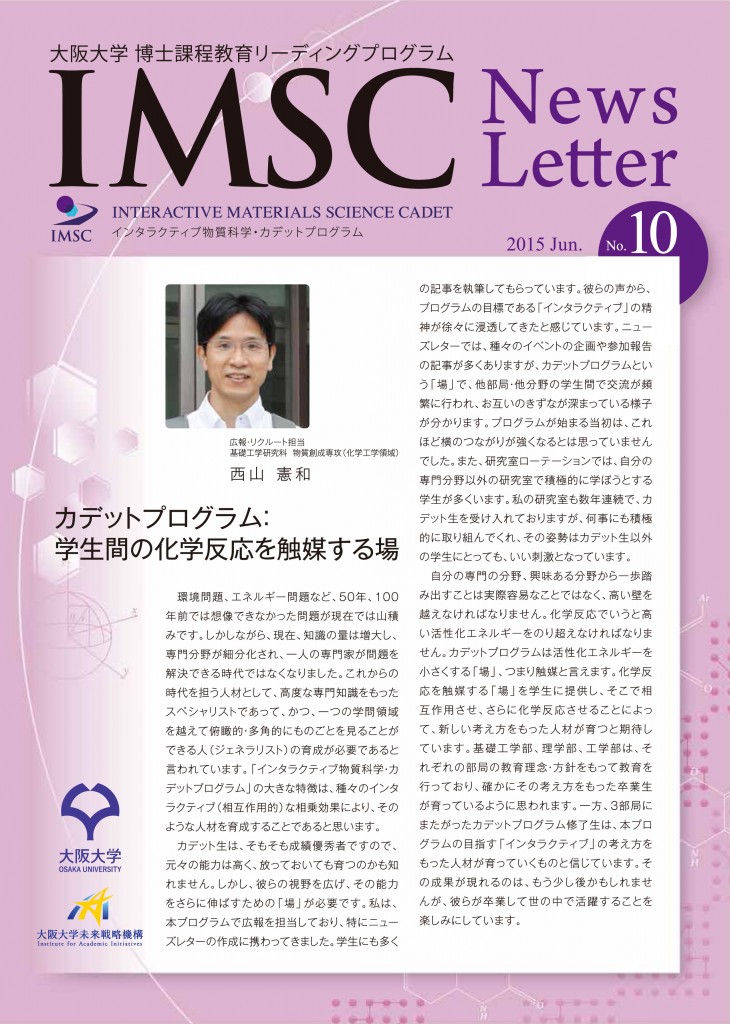 大阪大学 博士課程教育リーディングプログラム
IMSC
News
Letter
IMSC
INTERACTIVE MATERIALS SCIENCE CADET
インタラクティブ物質科学・カデットプログラム
2015 Jun.
No. 10
広報・リクルート担当
基礎工学研究科 物質創成専攻（化学工学領域）
西山 憲和
カデットプログラム：
学生間の化学反応を触媒する場
環境問題、エネルギー問題など、50年、100
年前では想像できなかった問題が現在では山積
みです。しかしながら、現在、知識の量は増大し、
専門分野が細分化され、一人の専門家が問題を
解決できる時代ではなくなりました。これからの
時代を担う人材として、高度な専門知識をもった
スペシャリストであって、かつ、一つの学問領域
を越えて俯瞰的・多角的にものごとを見ることが
できる人（ジェネラリスト）の育成が必要であると
言われています。「インタラクティブ物質科学・カ
デットプログラム」の大きな特徴は、種々のインタ
ラクティブ（相互作用的）な相乗効果により、その
ような人材を育成することであると思います。
カデット生は、そもそも成績優秀者ですので、
元々の能力は高く、放っておいても育つのかも知
れません。しかし、彼らの視野を広げ、その能力
をさらに伸ばすための「場」が必要です。私は、
本プログラムで広報を担当しており、特にニュー
ズレターの作成に携わってきました。学生にも多く
の記事を執筆してもらっています。彼らの声から、
プログラムの目標である「インタラクティブ」の精
神が徐々に浸透してきたと感じています。ニュー
ズレターでは、種々のイベントの企画や参加報告
の記事が多くありますが、カデットプログラムとい
う「場」で、他部局・他分野の学生間で交流が頻
繁に行われ、お互いのきずなが深まっている様子
が分かります。プログラムが始まる当初は、これ
ほど横のつながりが強くなるとは思っていません
でした。また、研究室ローテーションでは、自分の
専門分野以外の研究室で積極的に学ぼうとする
学生が多くいます。私の研究室も数年連続で、カ
デット生を受け入れておりますが、何事にも積極
的に取り組んでくれ、その姿勢はカデット生以外
の学生にとっても、いい刺激となっています。
自分の専門の分野、興味ある分野から一歩踏
み出すことは実際容易なことではなく、高い壁を
越えなければなりません。化学反応でいうと高
い活性化エネルギーをのり超えなければなりま
せん。カデットプログラムは活性化エネルギーを
小さくする「場」、つまり触媒と言えます。化学反
応を触媒する「場」を学生に提供し、そこで相
互作用させ、さらに化学反応させることによっ
て、新しい考え方をもった人材が育つと期待し
ています。基礎工学部、理学部、工学部は、そ
れぞれの部局の教育理念・方針をもって教育を
行っており、確かにその考え方をもった卒業生
が育っているように思われます。一方、3部局に
またがったカデットプログラム修了生は、本プロ
グラムの目指す「インタラクティブ」の考え方を
もった人材が育っていくものと信じています。そ
の成果が現れるのは、もう少し後かもしれませ
んが、彼らが卒業して世の中で活躍することを
楽しみにしています。
大阪大学
OSAKA UNIVERSITY
大阪大学未来戦略機構
Institute for Academic Initiatives
x
y
Ar
O
O
N
H
N
H